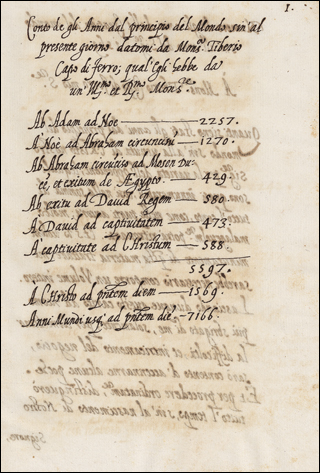 1.
Conto de gli Anni dal principio del Mondo sin' al
presente giorno datomi da Mons.r Tiberio
Capo di ferro; qual Egli hebbe da
un' Ill.mo et R.mo Mons.re
Ab Adam ad Noe 2257.
A Noe ad Abraham circuncisũ 1270.
Ab Abraham circũciso ad Mosen Du-
cẽ, et exitum de Ægypto 429.
Ab exitu ad David Regem 580.
A David ad captivitatem 473.
A captivitate ad Christum 588.
5597.
A Christo ad pñtem diem 1569.
Anni Mundi usq; ad pñtem diẽ 7166.